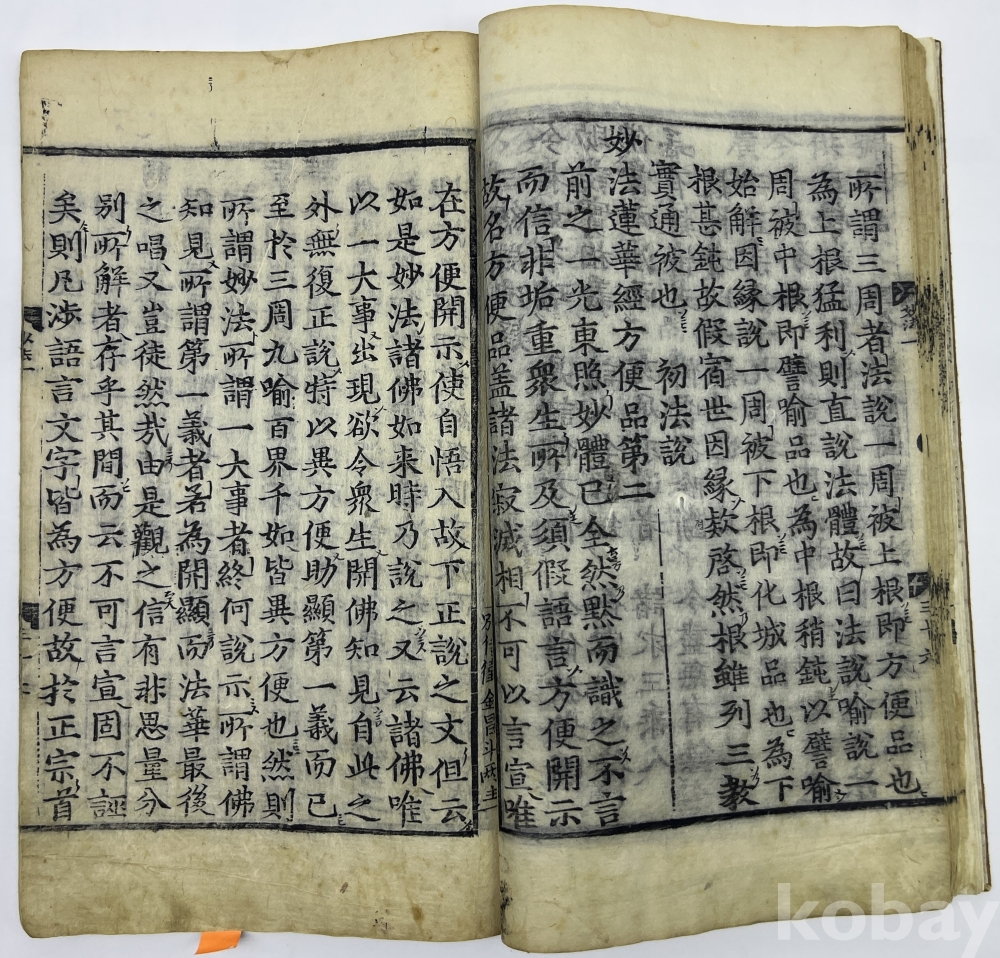 所謂三周者法說一周被上根即方便品也
為上根猛利則直說法體故曰法說喻說一
周被中根即譬喻品也為中根稍鈍以譬喻
始解因緣說一周被下根即化城品也為下
根甚鈍故假宿世因緣欸啓然根雖列三教
實通被也 初法說
妙法蓮華經方便品第二
前之一光東照妙體已全然默而識之不言
而信非垢重衆生所及須假語言方便開示
故名方便品盖諸法寂滅相不可以言宣唯
在方便開示使自悟入故下正說之文但云
如是妙法諸佛如来時乃說之又云諸佛唯
以一大事出現欲令衆生開佛知見自此之
外無復正說特以異方便助顯第一義而已
至於三周九喻百界千如皆異方便也然則
所謂妙法所謂一大事者終何說示所謂佛
知見所謂第一義者若為開顯而法華最後
之唱又豈徒然㢤由是觀之信有非思量分
別所解者存乎其間而云不可言宣固不誣
矣則凡涉語言文字皆為方便故於正宗首
kobay